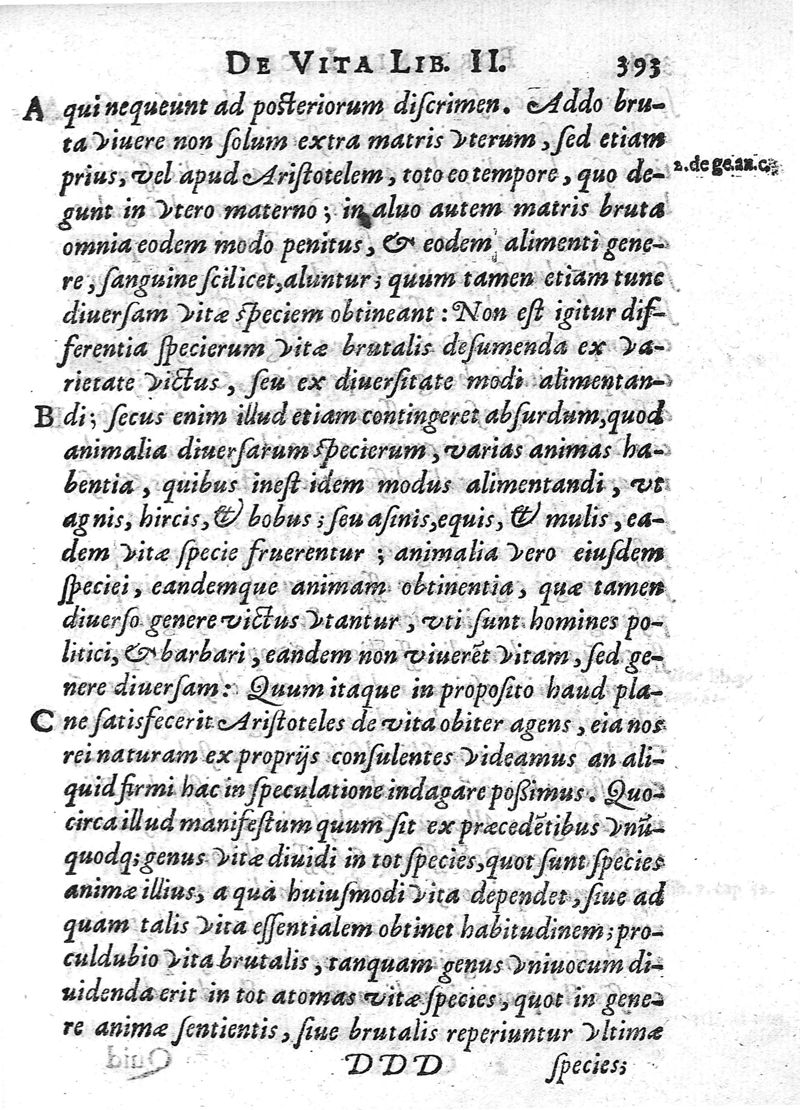 DE VITA LIB. II. 393
A qui nequeunt ad posteriorum discrimen. Addo bru-
ta viuere non solum extra matris vterum, sed etiam
prius, vel apud Aristotelem, toto eo tempore, quo de- 2. de ge. an. c. 3.
gunt in vtero materno; in aluo autem matris bruta
omnia eodem modo penitus, & eodem alimenti gene-
re, sanguine scilicet, aluntur; quum tamen etiam tunc
diuersam vitæ speciem obtineant: Non est igitur dif-
ferentia specierum vitæ brutalis desumenda ex va-
rietate victus, seu ex diuersitate modi alimentan-
B di; secus enim illud etiam contingeret absurdum, quod
animalia diuersarum specierum, varias animas ha-
bentia, quibus inest idem modus alimentandi, vt
agnis, hircis, & bobus; seu asinis, equis, & mulis, ea-
dem vitæ specie fruerentur; animalia vero eiusdem
speciei, eandemque animam obtinentia, quæ tamen
diuerso genere victus vtantur, vti sunt homines po-
litici, & barbari, eandem non viuerēt vitam, sed ge-
nere diuersam: Quum itaque in proposito haud pla-
C ne satisfecerit Aristoteles de vita obiter agens, eia nos
rei naturam ex proprijs consulentes videamus an ali-
quid firmi hac in speculatione indagare possimus. Quo-
circa illud manifestum quum sit ex præcedētibus vnū-
quodq; genus vitæ diuidi in tot species, quot sunt species
animæ illius, a qua huiusmodi vita dependet, siue ad
quam talis vita essentialem obtinet habitudinem; pro-
culdubio vita brutalis, tanquam genus vniuocum di-
uidenda erit in tot atomas vitæ species, quot in gene-
re animæ sentientis, siue brutalis reperiuntur vltimæ
DDD species;